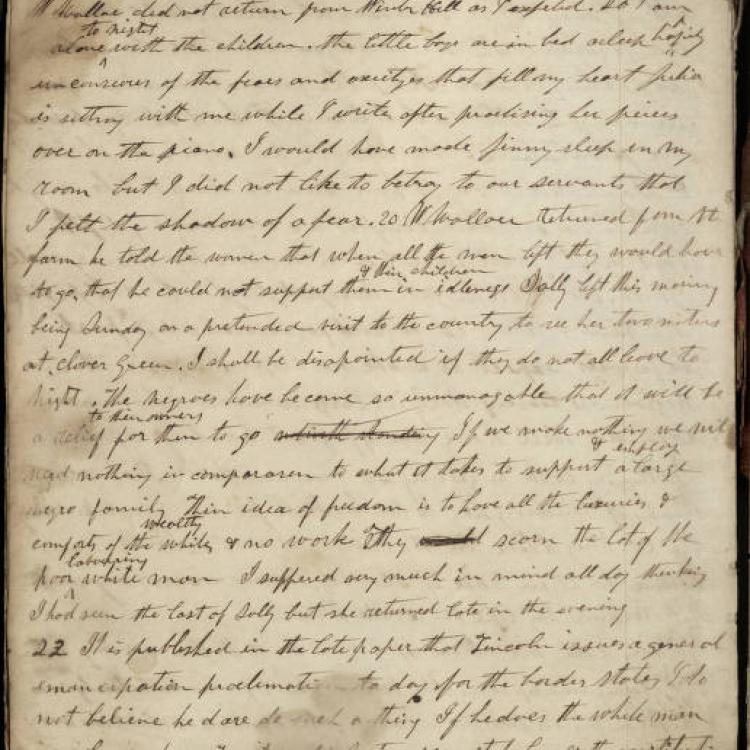 W Wallac did not return from Hill as I expected. So I am
to night
alone with the children. the little boys are in bed asleep happily
unconscious of the fears and axietyes that fill my heart Julia
is sitting with me while I write after practising her pieces
over on the piano. I would have made Jinny sleep in my
room but I did not like to betray to our servants that
I felt the shadow of a fear. 20 W Wallace returned from the
farm he told the women that when all the men left they would have
& their children
to go, that he could not support them in idleness Sally left this morning
being Sunday on a pretended visit to the country to see her two sisters
at clover Green. I shall be disapointed if they do not all leave to
night. The negroes have become so unmanagable that it will be
to their owners
a relief for them to go If we make nothing we will
& employ
need nothing in comparasen to what it takes to support a large
negro family Their idea of freedom is to have all the luxuries &
wealthy
comforts of the whites & no work They scorn the lot of the
labouring
poor white man I suffered very much in mind all day thinking
I had seen the last of Sally but she returned late in the evening
22 It is published in the late paper that Lincoln issues a general
emancipation proclamation to day for the border states I do
not believe he dare do such a thing If he does the white man